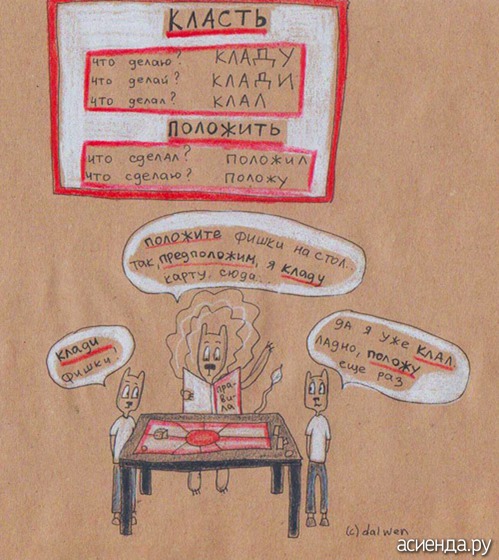 КЛАСТЬ
что делаю? КЛАДУ
что делай? КЛАДИ
что делал? КЛАЛ
ПОЛОЖИТЬ
что сделал? ПОЛОЖИЛ
что сделаю? ПОЛОЖУ
ПОЛОЖИТЕ ФИШКИ НА СТОЛ..
ТАК, ПРЕДПОЛОЖИМ, Я КЛАДУ
КАРТУ, СЮДА...
КЛАДИ
ФИШКИ,
ДА Я УЖЕ КЛАЛ.
ЛАДНО, ПОЛОЖУ
ЕЩЕ РАЗ
ПРА-
ВИ-
ЛА
(c) dalwen
асиенда.ру